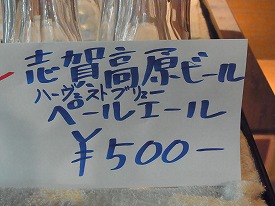 志賀高原ビール
ハーヴェストブリュー
ペールエール
¥500-